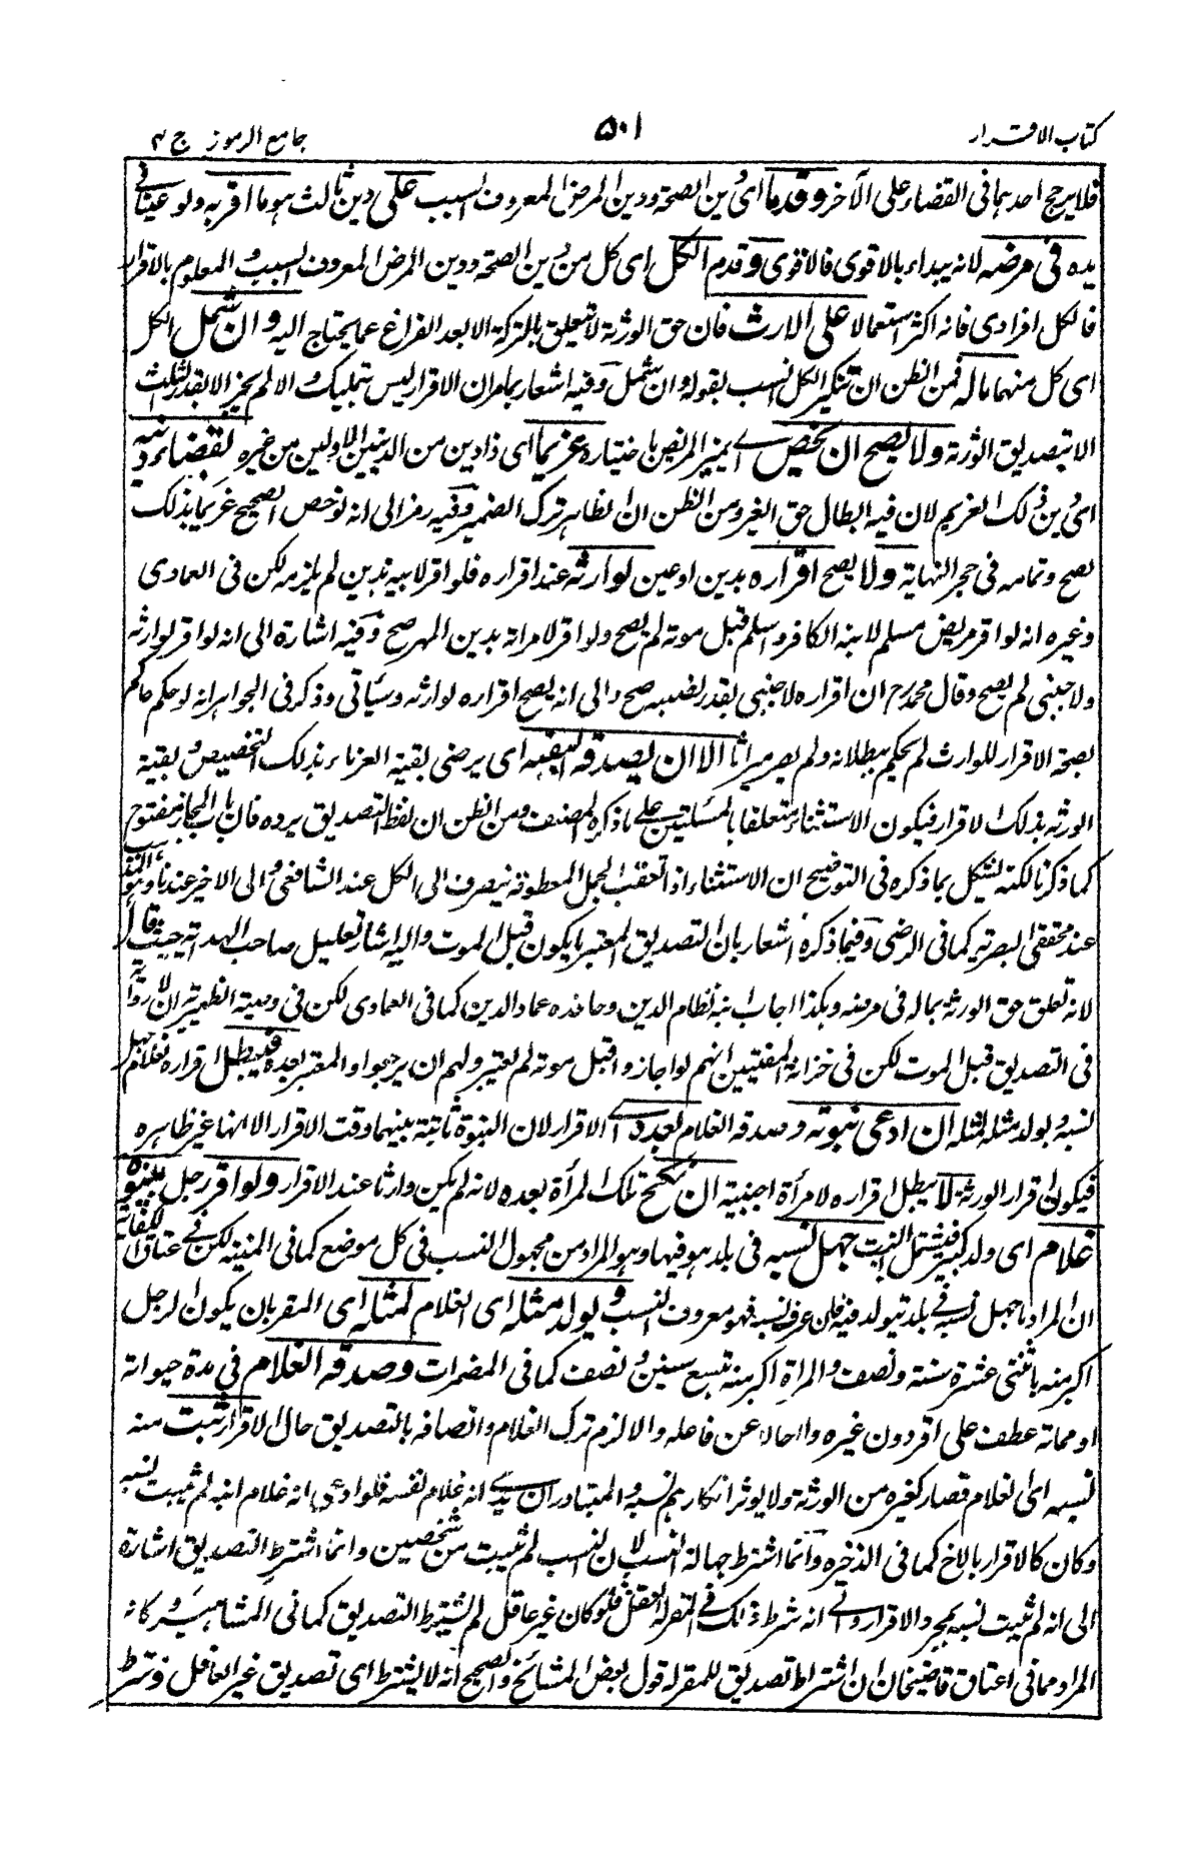 كتاب الاقرار
٥٠١
جامع الرموز ج ٣
فلا يرجح احدهما فى القضاء على الآخر وقدما اى دين الصحة ودين المرض المعروف السبب على دين ثالث هو ما اقر به ولو عينا فى
يده فى مرضه لانه يبداء بالاقوى فالاقوى وقدم الكل اى كل من دين الصحة ودين المرض المعروف السبب والمعلوم بالاقرار
فالكل افرادى فانه اكثر استعمالا على الارث فان حق الورثة لا تتعلق بالتركة الا بعد الفراغ عما يحتاج اليه وان شمل الكل
اى كل منهما ماله فمن الظن ان تنكير الكل انسب بقوله وان شمل وفيه اشعار بامر ان الاقرار ليس بتمليك والا لم يجز الا بقدر الثلث
الا بتصديق الورثة ولا يصح ان يخص اى يميز المريض باختياره غريما اى ذا دين من الدينين الاولين من غيره بقضاء دينه
اى دين ذلك الغريم لان فيه ابطال حق الغير ومن الظن ان الظاهر ترك الضمير وفيه رمز الى انه لو خص الصحيح غريما بذلك
يصح وتمامه فى حجر النهاية ولا يصح اقراره بدين او عين لوارثه عند اقراره فلو اقر لابيه بدين لم يلزمه لكن فى العمادى
وغيره انه لو اقر مريض مسلم لابنه الكافر واسلم قبل موته لم يصح ولو اقر لامراته بدين المهر صح وفيه اشارة الى انه لو اقر لوارثه
ولاجنبى لم يصح وقال محمد رح ان اقراره لاجنبى بقدر نصيبه صح والى انه يصح اقراره لوارثه وسيأتى وذكر فى الجواهر انه لو حكم حاكم
بصحة الاقرار للوارث لم يحكم ببطلانه ولم يصر ميراثا الا ان يصدقه البقية اى يرضى بقية الغرماء بذلك التخصيص وبقية
الورثة بذلك الاقرار فيكون الاستثناء متعلقا بالمسئلتين على ما ذكره المصنف ومن الظن ان لفظ التصديق يرده فان باب المجاز مفتوح
كما ذكرنا لكنه يشكل بما ذكره فى التوضيح ان الاستثناء اذا تعقب الجمل المعطوفة ينصرف الى الكل عند الشافعى والى الاخير عندنا
عند محققى البصرية كما فى الرضى وفيما ذكره اشعار بان التصديق المعتبر ما يكون قبل الموت واليه اشار تعليل صاحب الهداية حيث قال
لانه تعلق حق الورثة بماله فى مرضه وبكذا اجاب ابنه نظام الدين وحافده عماد الدين كما فى العمادى لكن فى وصية الظهيرية ان لا رواية
فى التصديق قبل الموت لكن فى خزانة المفتيين انهم لو اجازوا قبل موته لم يعتبر ولهم ان يرجعوا والمعتبر بعده فيبطل اقراره لغلام جهل
نسبه ويولد مثله لمثله ان ادعى بنوته وصدقه الغلام بعده اى الاقرار لان البنوة ثابتة بينهما وقت الاقرار الا انها غير ظاهره
فيكون اقرار الورثة لا يبطل اقراره لامرأة اجنبية ان نكح تلك المرأة بعده لانه لم يكن وارثا عند الاقرار ولو اقر رجل ببنوة
غلام اى ولد كبير فيشتمل البنت جهل نسبه فى بلد هو فيها وهو المراد من مجهول النسب فى كل موضع كما فى المنية لكن فى عتاق الكفاية
ان المراد ما جهل نسبه فى بلد تولد فيه فان عرف نسبه فهو معروف النسب ويولد مثله اى الغلام لمثله اى المقر بان يكون الرجل
اكبر منه باثنتى عشرة سنة ونصف والمراة اكبر منه بتسع سنين ونصف كما فى المضمرات وصدقه الغلام فى مدة حيوته
او مماته عطف على اقر دون غيره والاحالا عن فاعله والا لزم ترك الغلام واتصافه بالتصديق حال الاقرار ثبت منه
نسبه اى الغلام فصار كغيره من الورثة ولا يوثر انكارهم نسبه والمتبادر ان يدعى انه غلام نفسه فلو ادعى انه غلام ابنه لم يثبت نسبه
وكان كالاقرار بالاخ كما فى الذخيره وانما اشترط جهالة النسب لان النسب لم يثبت من شخصين وانما اشترط التصديق اشارة
الى انه لم يثبت نسبه بمجرد الاقرار وفى انه شرط ذلك فى المقر له العقل فلو كان غير عاقل لم يشترط التصديق كما فى المشاهير وكانه
المراد مما فى اعتاق قاضيخان ان اشتراط تصديق للمقر له قول بعض المشائخ والصحيح انه لا يشترط اى تصديق غير العاقل وشرط